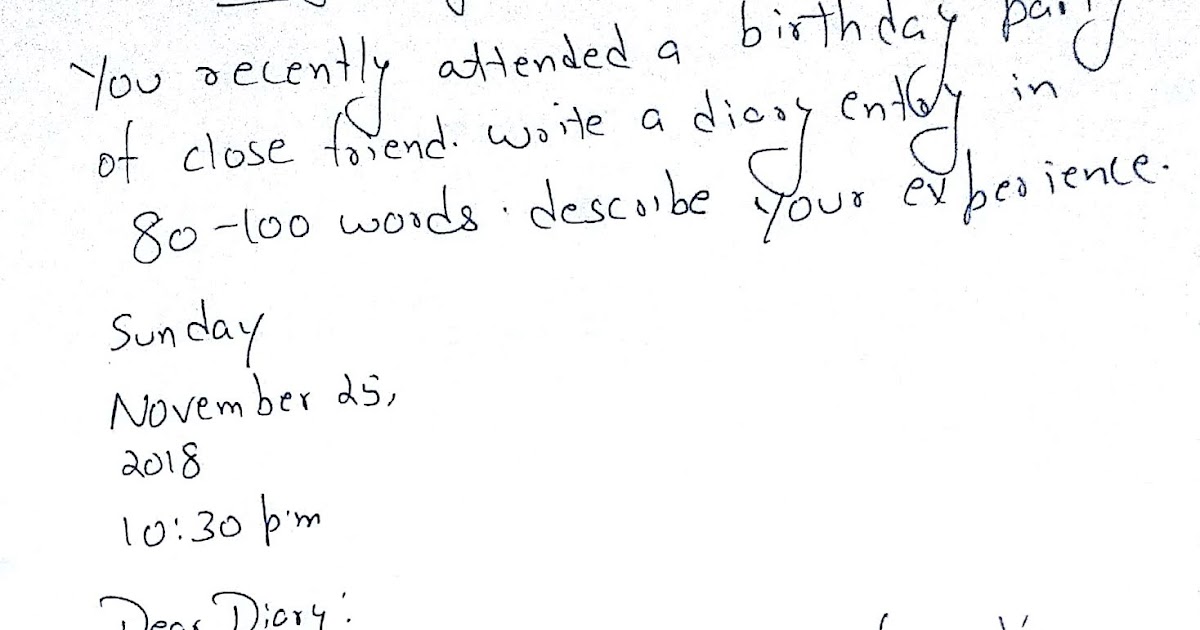 You recently attended a birthday party
of close friend. write a diary entry in
80-100 words. describe your experience.
Sunday
November 25,
2018
10:30 p.m
Dear Diary: